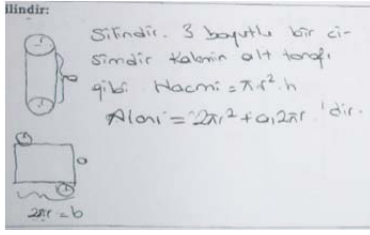 ilindir:
Silindir. 3 boyutlu bir ci-
simdir Kalemin alt tarafı
gibi Hacmi = π.r².h
Alanı = 2πr² + a.2πr 'dir.
a
a
2πr = b